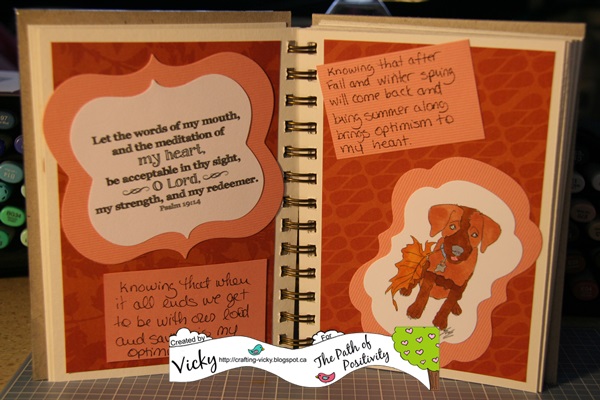 Let the words of my mouth,
and the meditation of
my heart,
be acceptable in thy sight,
O Lord,
my strength, and my redeemer.
Psalm 19:14
Knowing that when
it all ends we get
to be with our lord
and my
Knowing that after
Fall and winter spring
will come back and
bring summer along
brings optimism to
my heart.
Created by
Vicky http://crafting-vicky.blogspot.ca
For
The Path of
Positivity